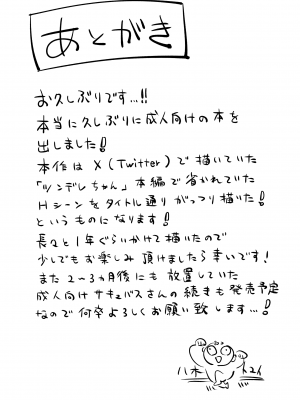 あとがき
お久しぶりです…!!
本当に久しぶりに成人向けの本を
出しました!
本作は X (Twitter) で描いていた
「ツンデレちゃん」本編で省かれていた
Hシーンをタイトル通りがっつり描いた!
というものになります!
長々と1年ぐらいかけて描いたので
少しでもお楽しみ頂けましたら幸いです!
また2~3ヵ月後にも放置していた
成人向けサキュバスさんの続きも発売予定
なので何卒よろしくお願い致します…!
八木